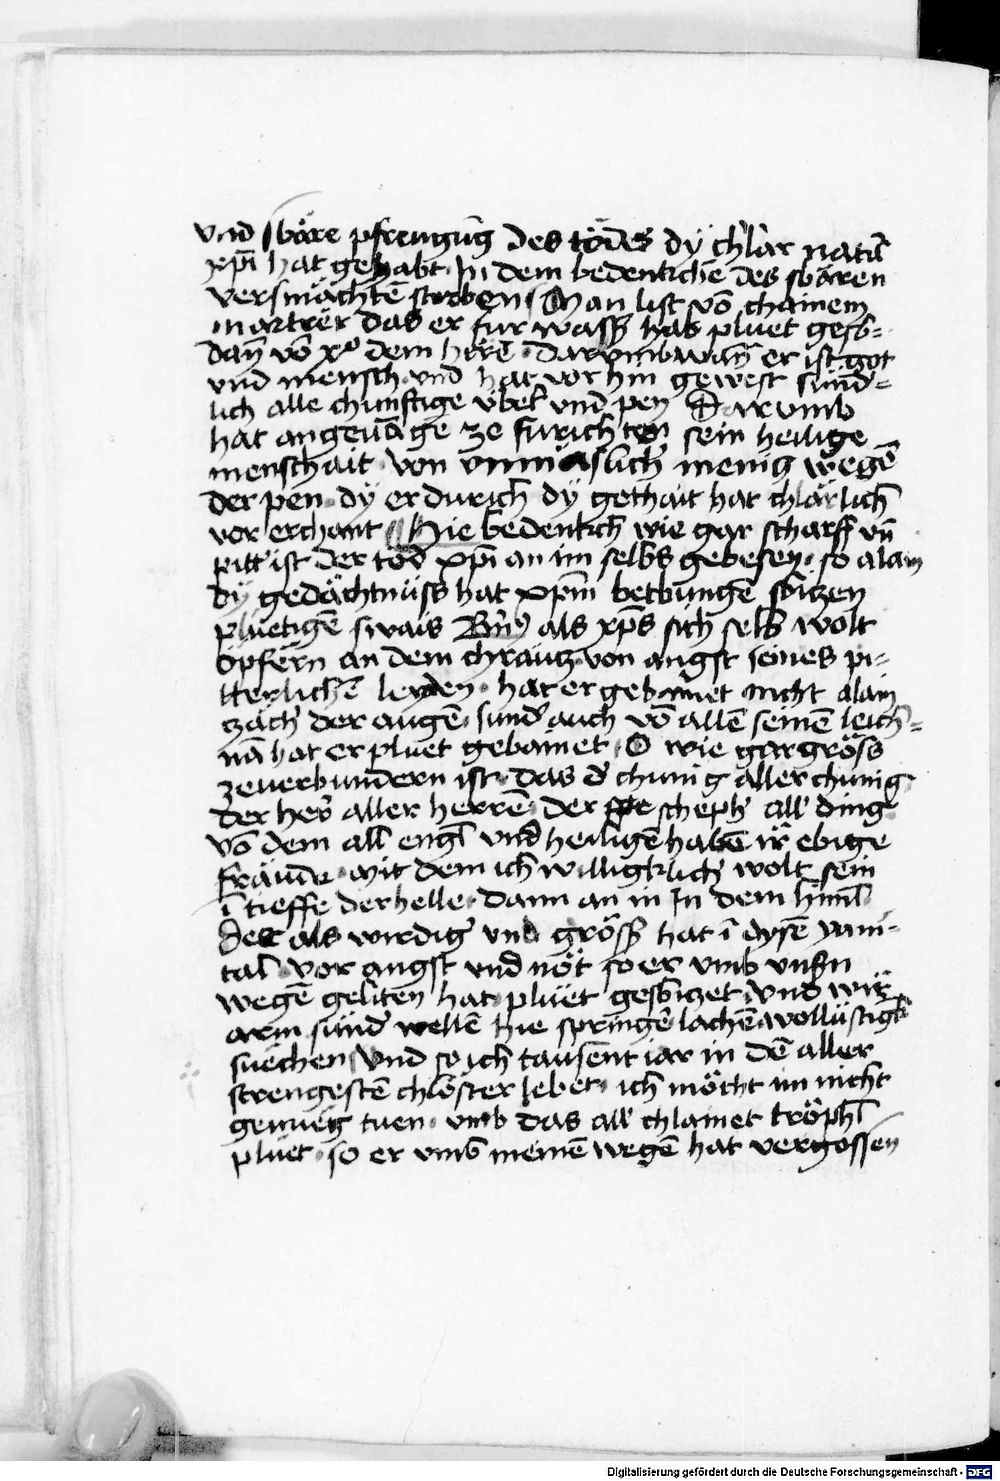 vnd swäre pfrengūg des tödes dy chlar natur
xp̄i hat gehabt · In dem bedenkchē des swären
versmächtē sterben Man list vō chainem
martrer das er fur wasser hab pluet gesb=
vō xo dem herrē · Darvmb wañ er ist got
vnd mensch · vnd hat vor hin gewest sund=
lich alle chunftige übel vnd pen Darvmb
hat angeuāge ze furichten sein heilige
menschait · von vnmaslich menig wegē
der pen · dy er durich dy gothait hat chlärlich
vor erchant Hie bedenkch wie gar scharff vn̄
pitt ist der tod xp̄i an im selbs gebesen · so alain
dy gedächtnüss hat xp̄m betbungē sbitzen
pluetigē swais als xp̄s sich selb wolt
opfern an dem chräutz · von angst seines pi=
tterlichē leyden · hat er gebainet nicht alain
zäch der augē · sund auch vō allē seinē leich=
nā hat er pluet gebainet · O wie gar gröss
zeuerbundern ist · das d chunig aller chunig
der her aller herrē · der scheph all ding
vō dem all engl vnd heiligē habē ir ebige
fräude · mit dem ich willigklich wolt sein
ī tieffe der helle · dann an in In dem himl
Der als wirdig vnd grösser hat ī dysē
tal · vor angst vnd nöt so er vmb vnsn
wegē geliten hat · pluet gesbitzet · vnd wir
arm sünd wellē hie springē lachē wollüstigk
suechen · Vnd so ich tausent iar in dē aller
strengestē chloster lebet · ich möcht im nicht
genueg tuen · vmb das all chlainet tröphl
pluet · so er vmb meinē wegē hat vergossen
Digitalisierung gefördert durch die Deutsche Forschungsgemeinschaft - DFG